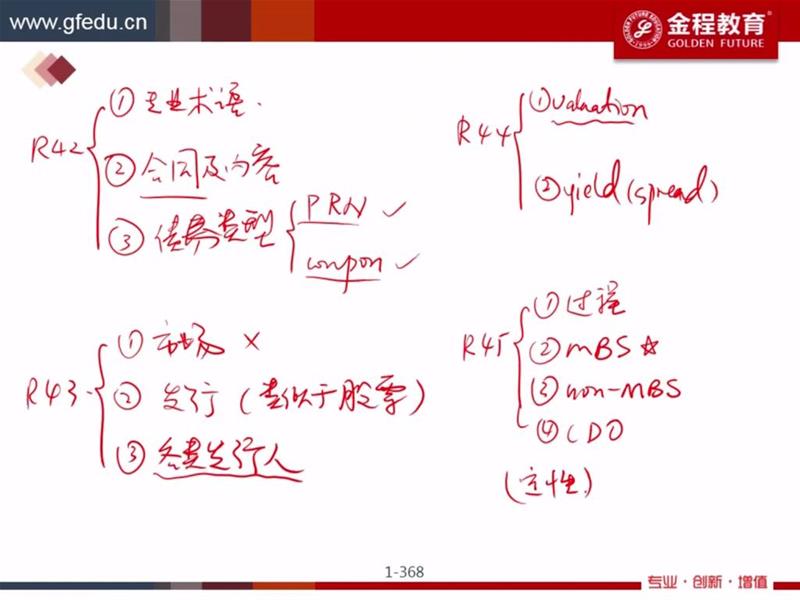 www.gfedu.cn
金程教育
GOLDEN FUTURE
R42
① 专业术语.
② 合同及内容
③ 债券类型
PRN ✓
coupon ✓
R43
① 市场 ×
② 发行 (类似于股票)
③ 各类发行人
R44
① valuation
② yield (spread)
R45
① 过程
② MBS ☆
③ non-MBS
④ CDO
(定性)
1-368
专业·创新·增值